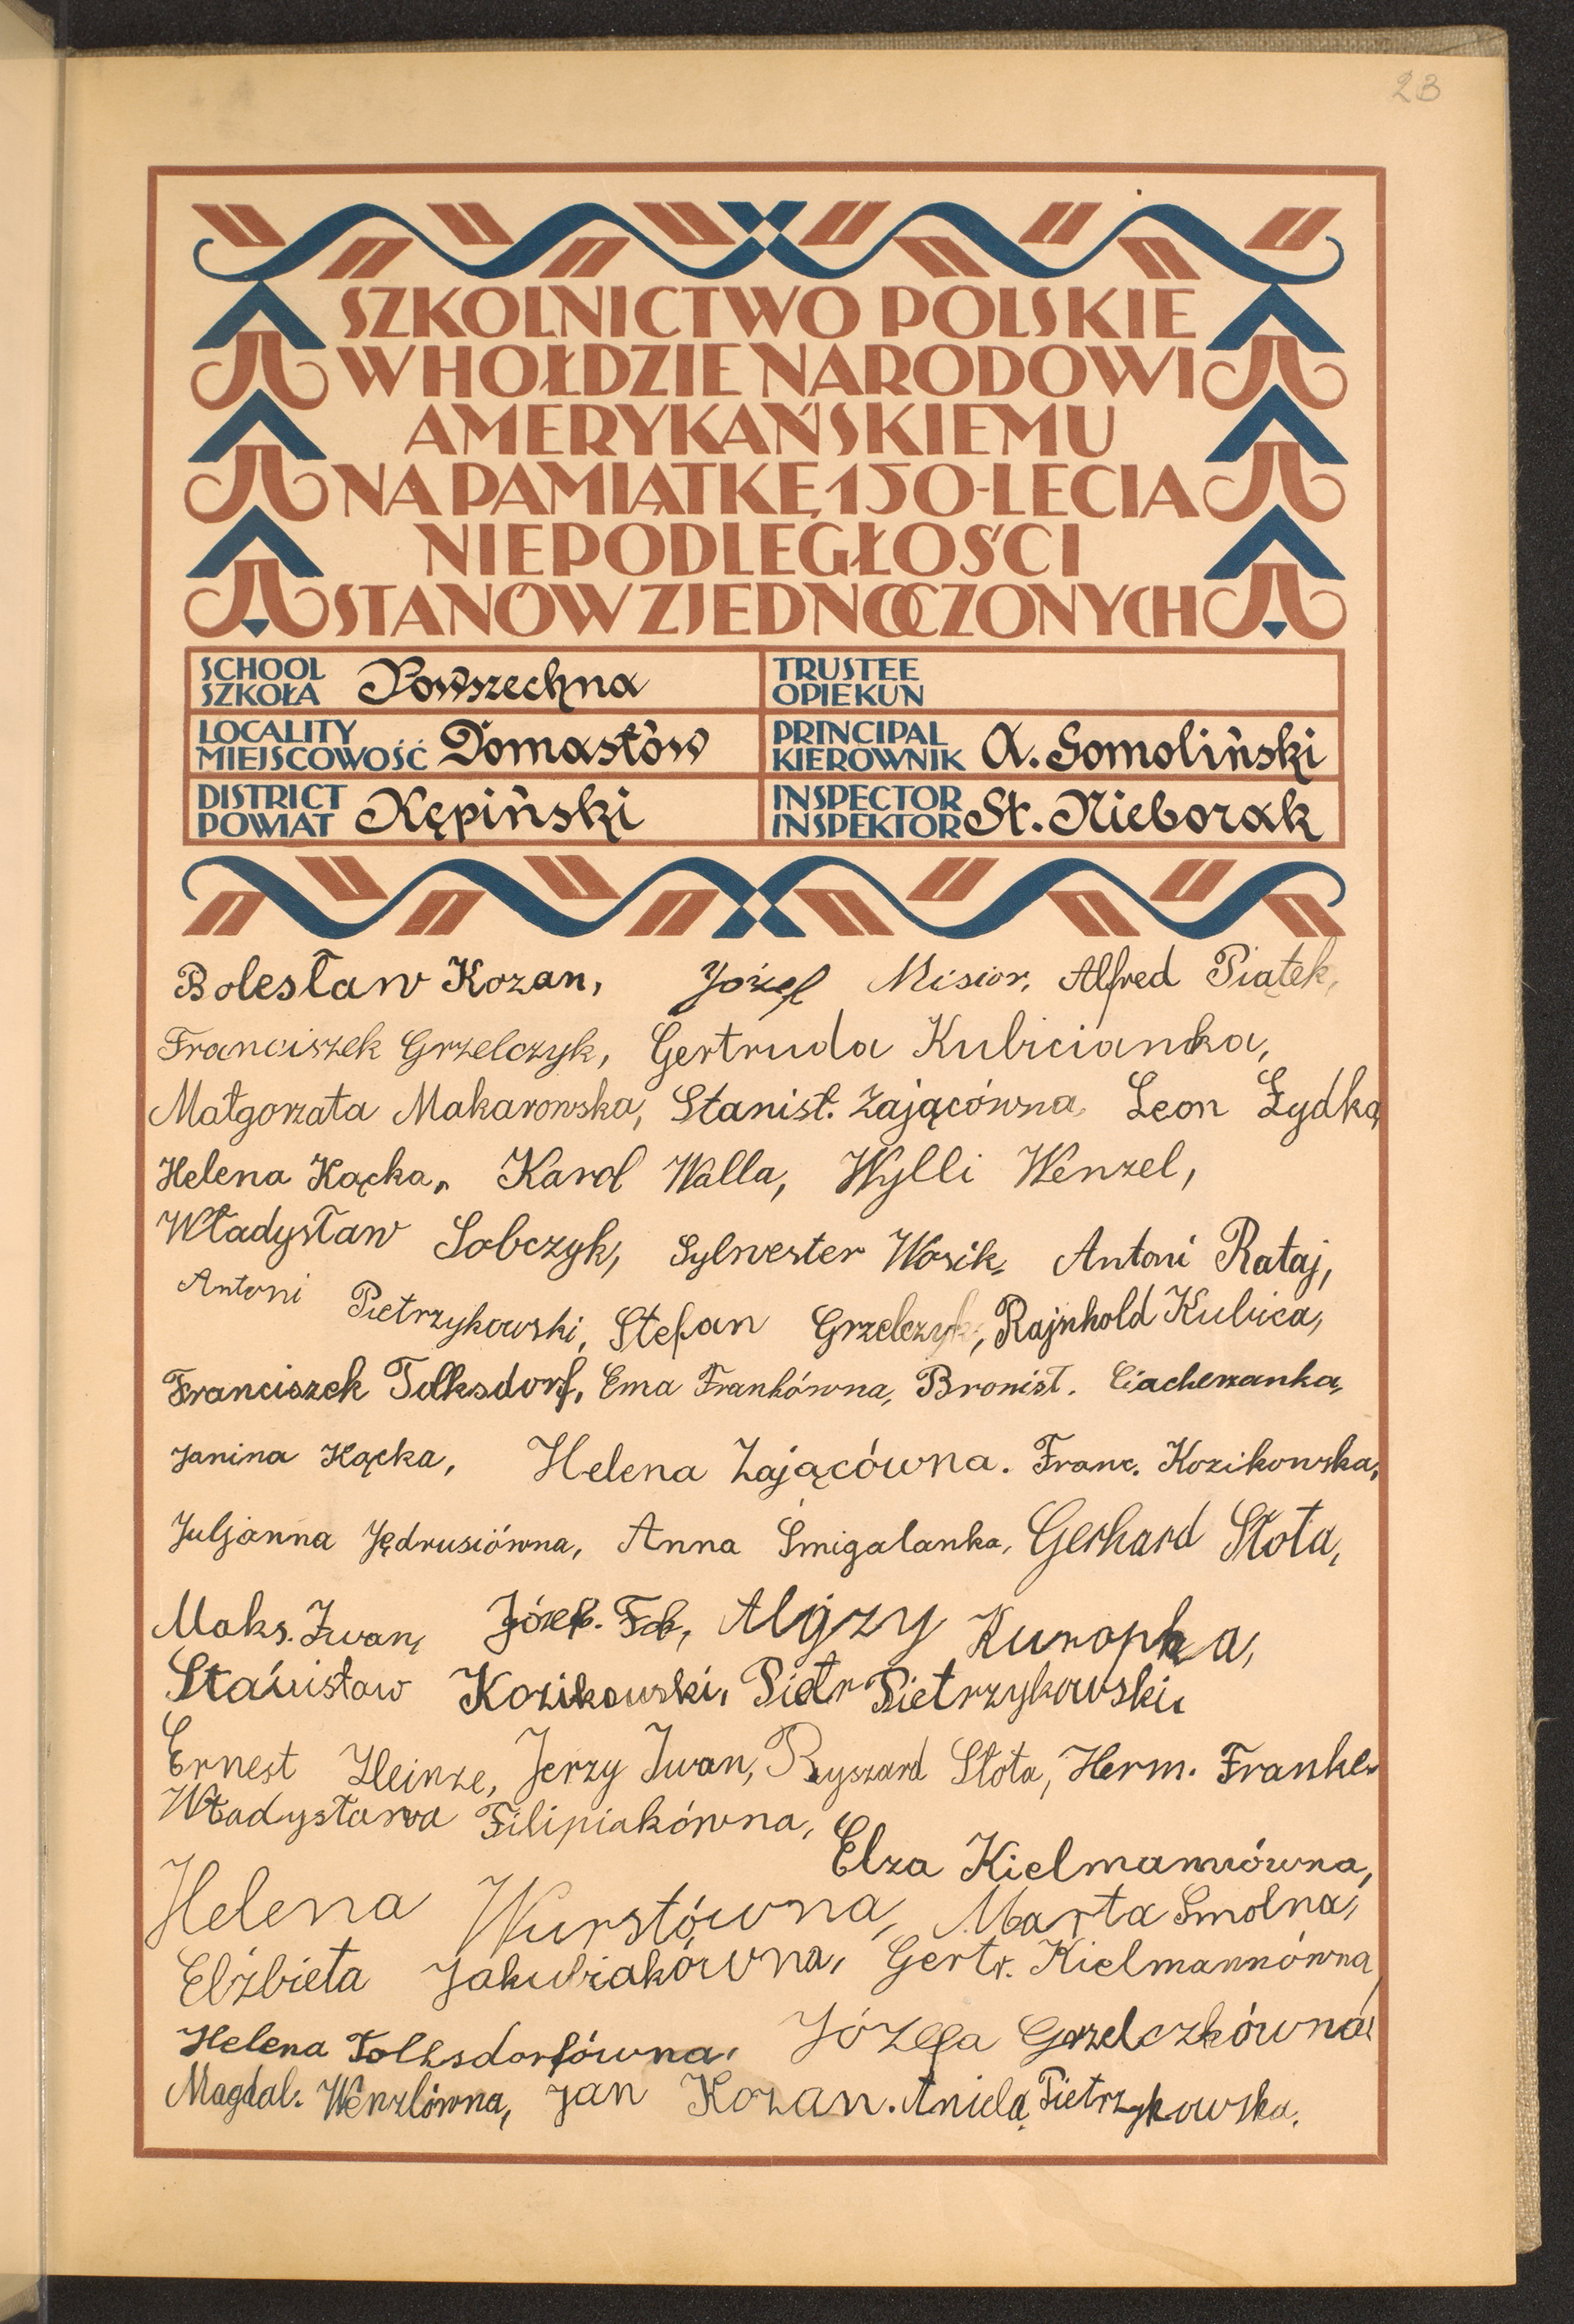 23
SZKOLNICTWO POLSKIE
W HOŁDZIE NARODOWI
AMERYKAŃSKIEMU
NA PAMIĄTKĘ 150-LECIA
NIEPODLEGŁOŚCI
STANÓW ZJEDNOCZONYCH
SCHOOL
SZKOŁA Powszechna
TRUSTEE
OPIEKUN
LOCALITY
MIEJSCOWOŚĆ Domasłów
PRINCIPAL
KIEROWNIK A. Somoliński
DISTRICT
POWIAT Kępiński
INSPECTOR
INSPEKTOR St. Nieborak
Bolesław Kozan, Józef Misior, Alfred Piątek,
Franciszek Grzelczyk, Gertruda Kubicianka,
Małgorzata Makarowska, Stanisł. Zającówna, Leon Żydka
Helena Kącka, Karol Walla, Wylli Wenzel,
Władysław Sobczyk, Sylwester Wosik, Antoni Rataj,
Antoni Pietrzykowski, Stefan Grzelczyk, Rajnhold Kubica,
Franciszek Tolksdorf, Ema Frankówna, Bronisł. Ciacherzanka,
Janina Kącka, Helena Zającówna. Franc. Kozikowska,
Juljanna Jędrusiówna, Anna Śmigalanka, Gerhard Słota,
Maks. Iwan, Józef. Alojzy Kuropka,
Stanisław Kozikowski, Piotr Pietrzykowski,
Ernest Heinze, Jerzy Iwan, Ryszard Słota, Herm. Franke
Władysława Filipiakówna,
Elza Kielmannówna,
Helena Wurstówna, Marta Smolna,
Elżbieta Jakubiakówna, Gertr. Kielmannówna,
Helena Tolksdorfówna, Józefa Grzelczkówna
Magdal. Wenzlówna, Jan Kozan. Aniela Pietrzykowska.